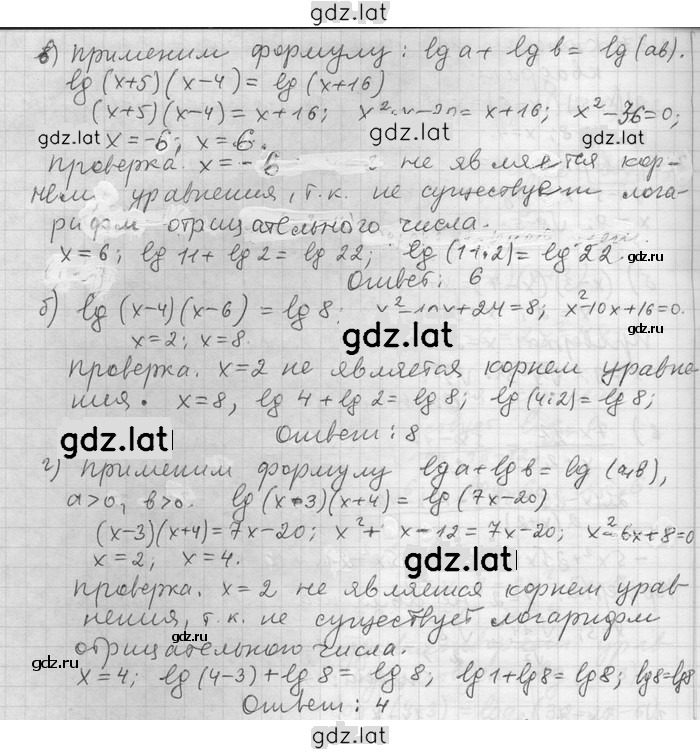 gdz.lat
в) применим формулу: lg a + lg b = lg (ab).
lg (x+5)(x-4) = lg (x+16)
(x+5)(x-4) = x+16; = x+16; x²-36=0;
gdz.lat x=-6; x=6. gdz.lat gdz.lat
проверка. x=-6 не является кор-
нем уравнения, т.к. не существует лога-
рифм отрицательного числа.
x=6; lg 11 + lg 2 = lg 22; lg (11·2) = lg 22.
Ответ: 6
б) lg (x-4)(x-6) = lg 8; +24=8; x²-10x+16=0.
x=2; x=8. gdz.lat gdz.lat
проверка. x=2 не является корнем уравне-
ния. x=8, lg 4 + lg 2 = lg 8; lg (4·2) = lg 8;
gdz.lat Ответ: 8
г) применим формулу lg a + lg b = lg (a·b),
a>0, b>0. lg (x-3)(x+4) = lg (7x-20)
(x-3)(x+4) = 7x-20; x²+x-12 = 7x-20; x²-6x+8=0
x=2; x=4. gdz.lat
проверка. x=2 не является корнем урав-
нения, т.к. не существует логарифм
gdz.lat gdz.lat
отрицательного числа.
gdz.lat gdz.lat
x=4; lg (4-3) + lg 8 = lg 8; lg 1 + lg 8 = lg 8; lg 8 = lg 8
Ответ: 4
gdz.lat